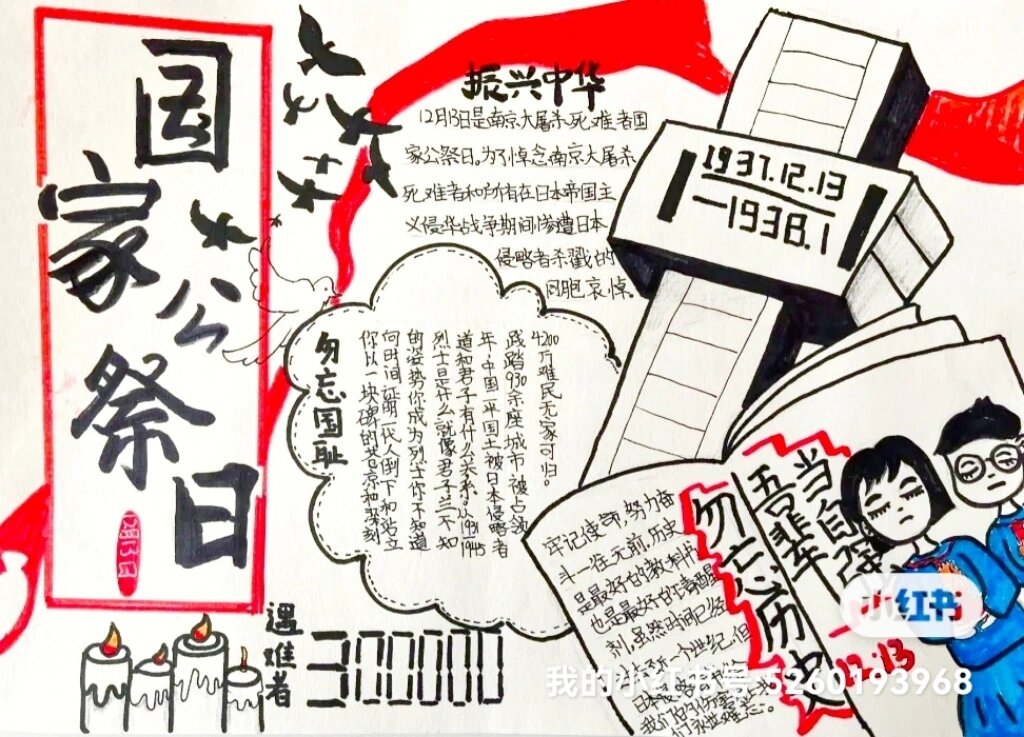 国家公祭日
12月13日
振兴中华
12月13日是南京大屠杀死难者国
家公祭日,为了悼念南京大屠杀
死难者和所有在日本帝国主
义侵华战争期间惨遭日本
侵略者杀戮的
同胞哀悼。
1937.12.13
—1938.1
勿忘国耻
4200万难民无家可归。
践踏930余座城市被占领
年,中国一半国土被日本侵略者
道和君子有什么关系,从1931 1945
烈士是什么就像君子兰不知
的姿势你成为烈士你不知道
向时间证明一代人倒下和站立
你以一块碑的苍凉和深刻
牢记使命,努力奋
斗一往无前,历史
是最好的教科书
也是最好的清醒
剂,虽然时间已经
勿忘历史
吾辈
当自强
12.13
遇难者
300000
小红书
我的小红书号 5260193968